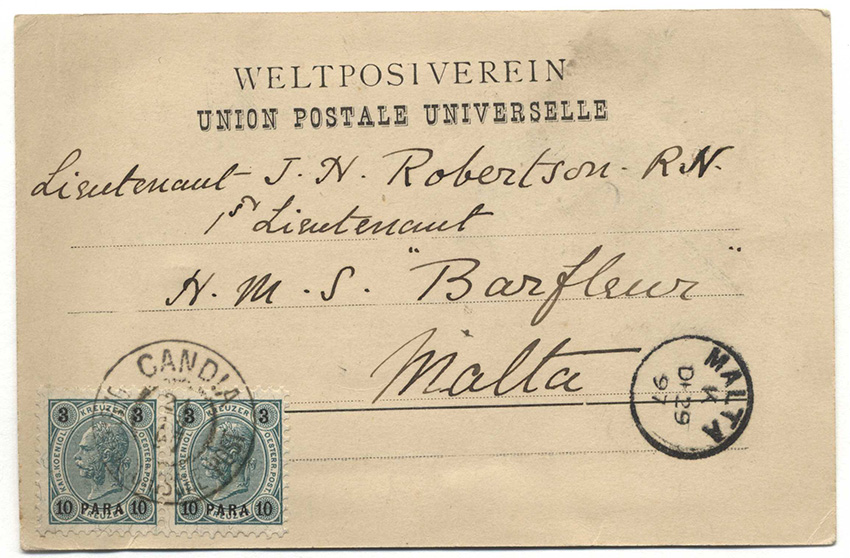 WELTPOSTVEREIN
UNION POSTALE UNIVERSELLE
Lieutenant J. H. Robertson. R.N.
1st Lieutenant
H. M. S. "Barfleur"
Malta
CANDIA
MALTA
K
DE 29
97
3 KREUZER 3
KAIS. KOENIGL. OESTERR. POST
10 PARA 10
3 KREUZER 3
KAIS. KOENIGL. OESTERR. POST
10 PARA 10